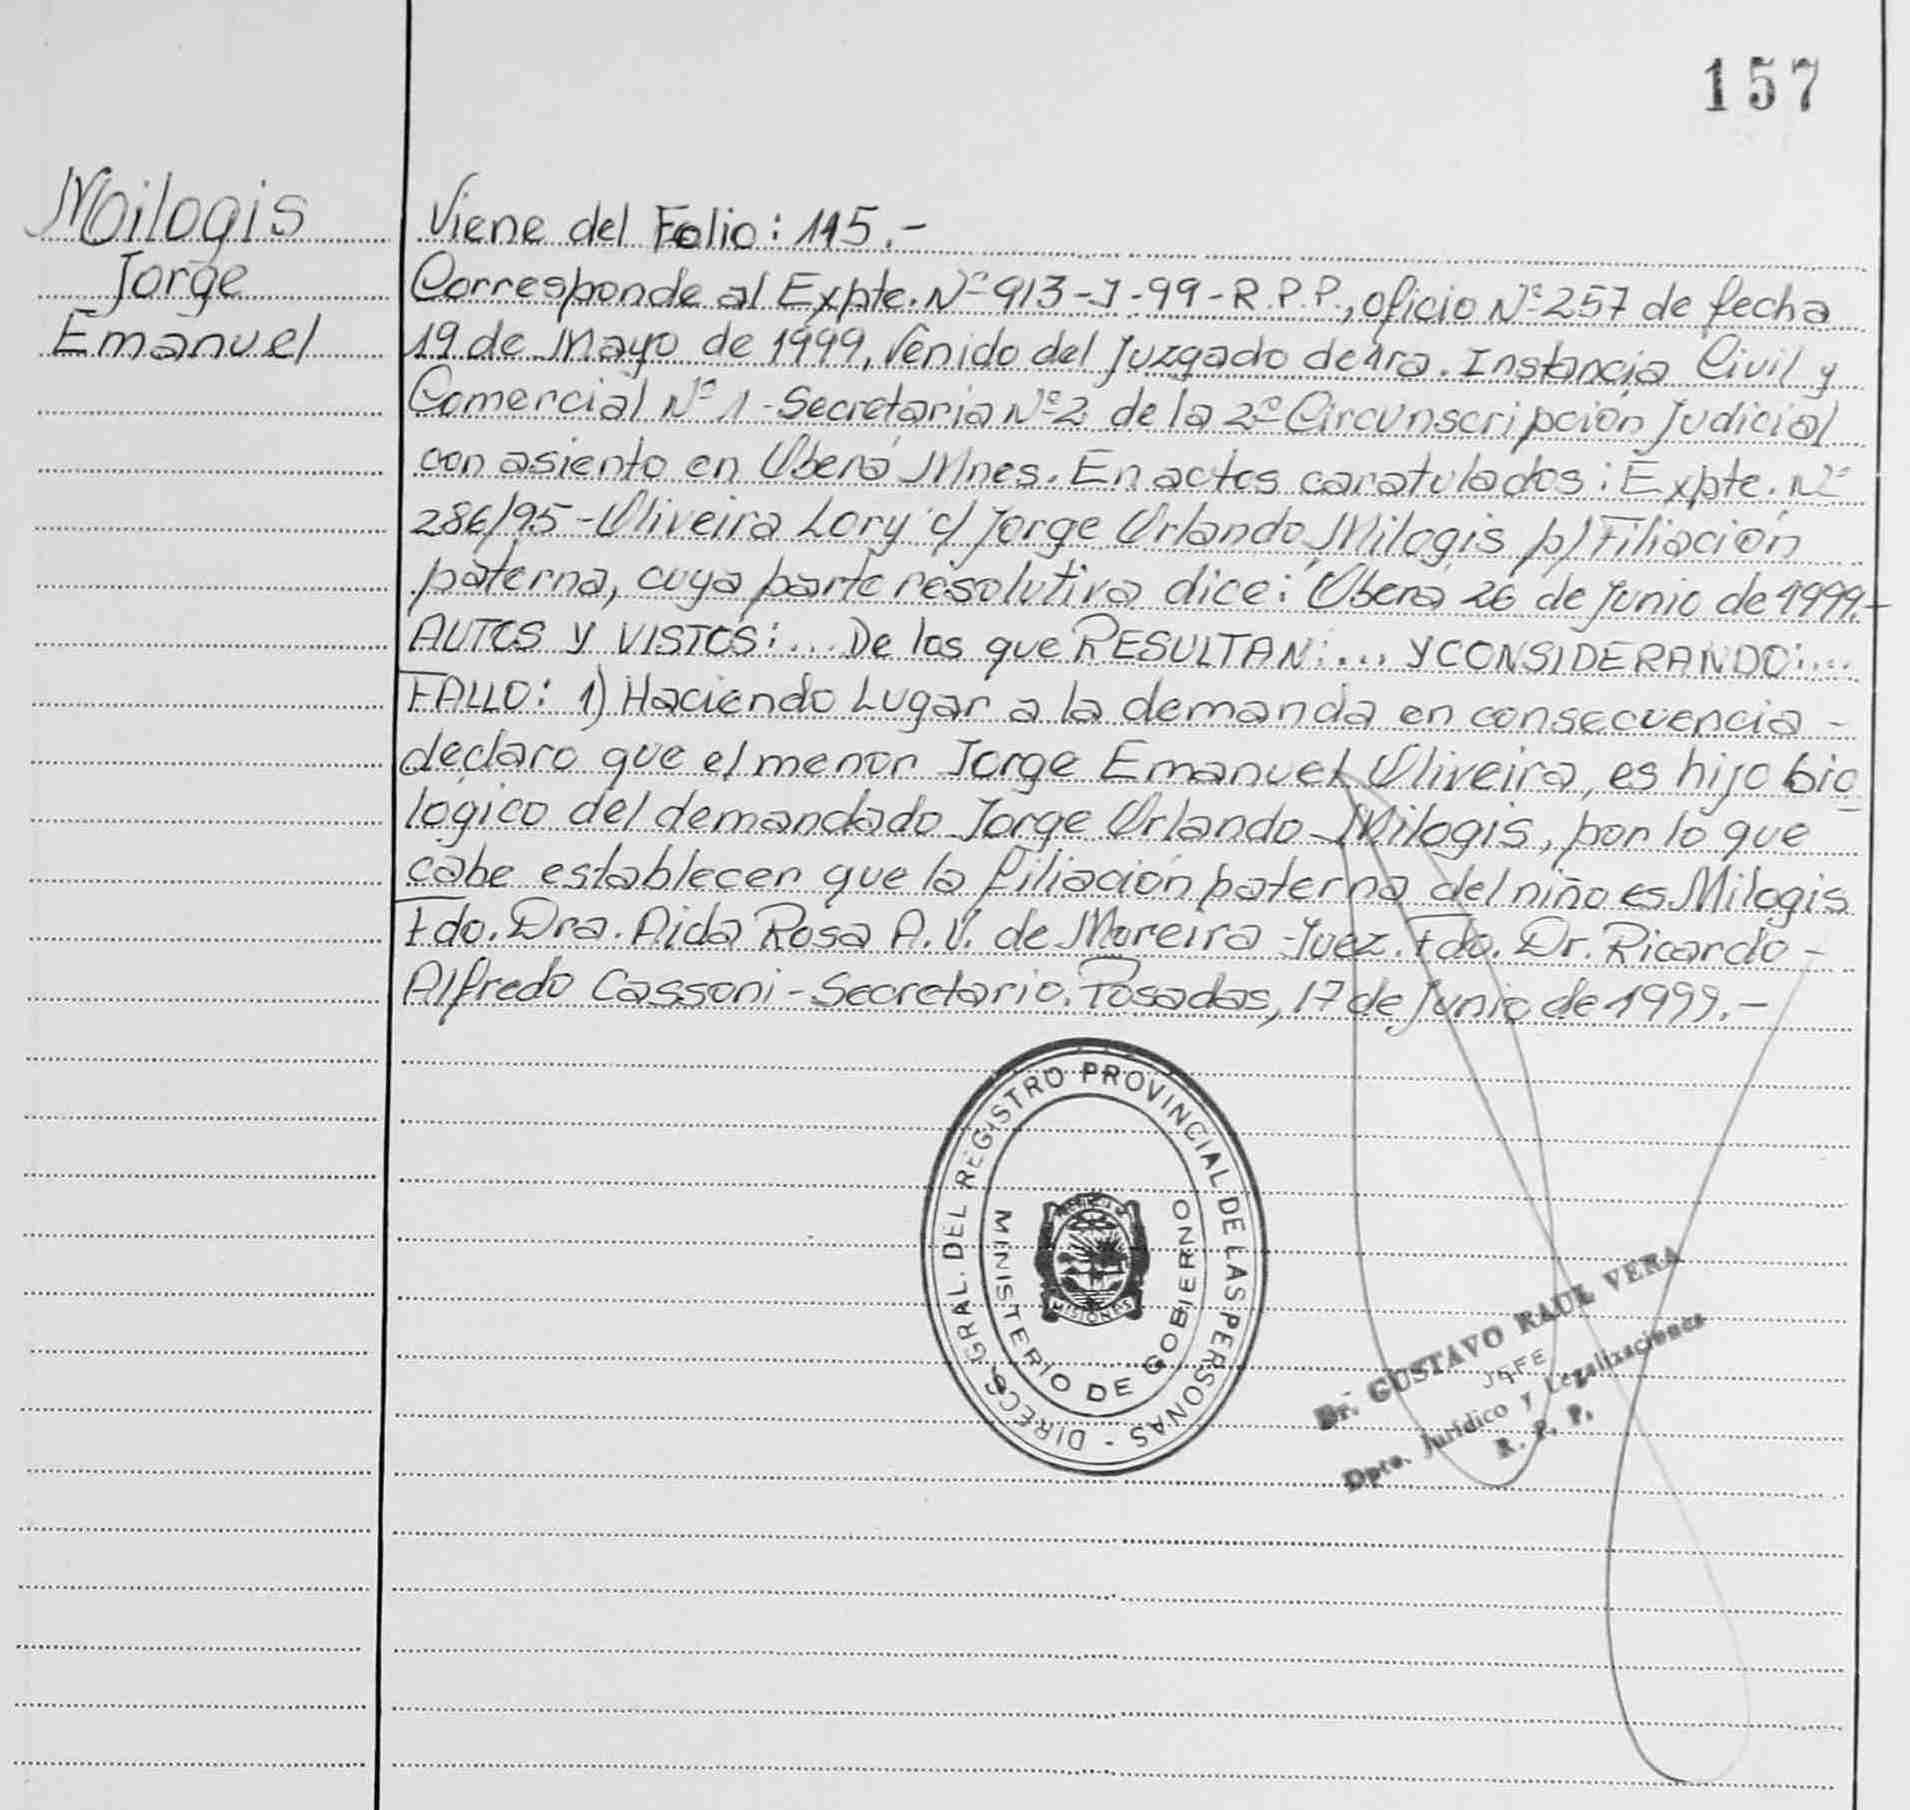 157
Moilogis
Jorge
Emanuel
Viene del Folio: 115.-
Corresponde al Expte. Nº 913-J-99-R.P.P., oficio Nº 257 de fecha
19 de Mayo de 1999, Venido del Juzgado de 1ra. Instancia Civil y
Comercial Nº 1 - Secretaria Nº 2 de la 2º Circunscripción Judicial
con asiento en Oberá Mnes. En actos caratulados: Expte. Nº
286/95 - Oliveira Lory c/ Jorge Orlando Milogis p/ Filiación
paterna, cuya parte resolutiva dice: Oberá 26 de Junio de 1999.-
AUTOS Y VISTOS:... De los que RESULTAN:... Y CONSIDERANDO:...
FALLO: 1) Haciendo Lugar a la demanda en consecuencia -
declaro que el menor Jorge Emanuel Oliveira, es hijo bio
lógico del demandado Jorge Orlando Milogis, por lo que
cabe establecer que la filiación paterna del niño es Milogis
Fdo. Dra. Aida Rosa A. V. de Moreira - Juez. Fdo. Dr. Ricardo -
Alfredo Cassoni - Secretario. Posadas, 17 de Junio de 1999.-
DIRECC. GRAL. DEL REGISTRO PROVINCIAL DE LAS PERSONAS -
MINISTERIO DE GOBIERNO
MISIONES
Dr. GUSTAVO RAUL VERA
JEFE
Dpto. Jurídico y Legalizaciones
R. P. P.